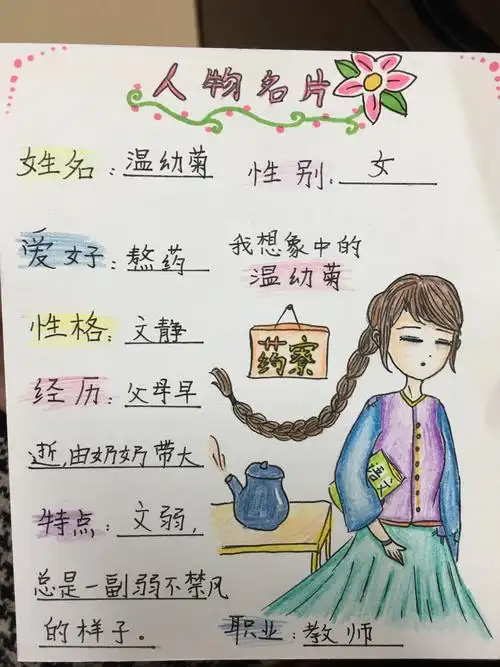 人物名片
姓名：温幼菊 性别：女
爱好：熬药
我想象中的
温幼菊
性格：文静
药寮
经历：父母早
逝，由奶奶带大
语文
特点：文弱，
总是一副弱不禁风
的样子。
职业：教师